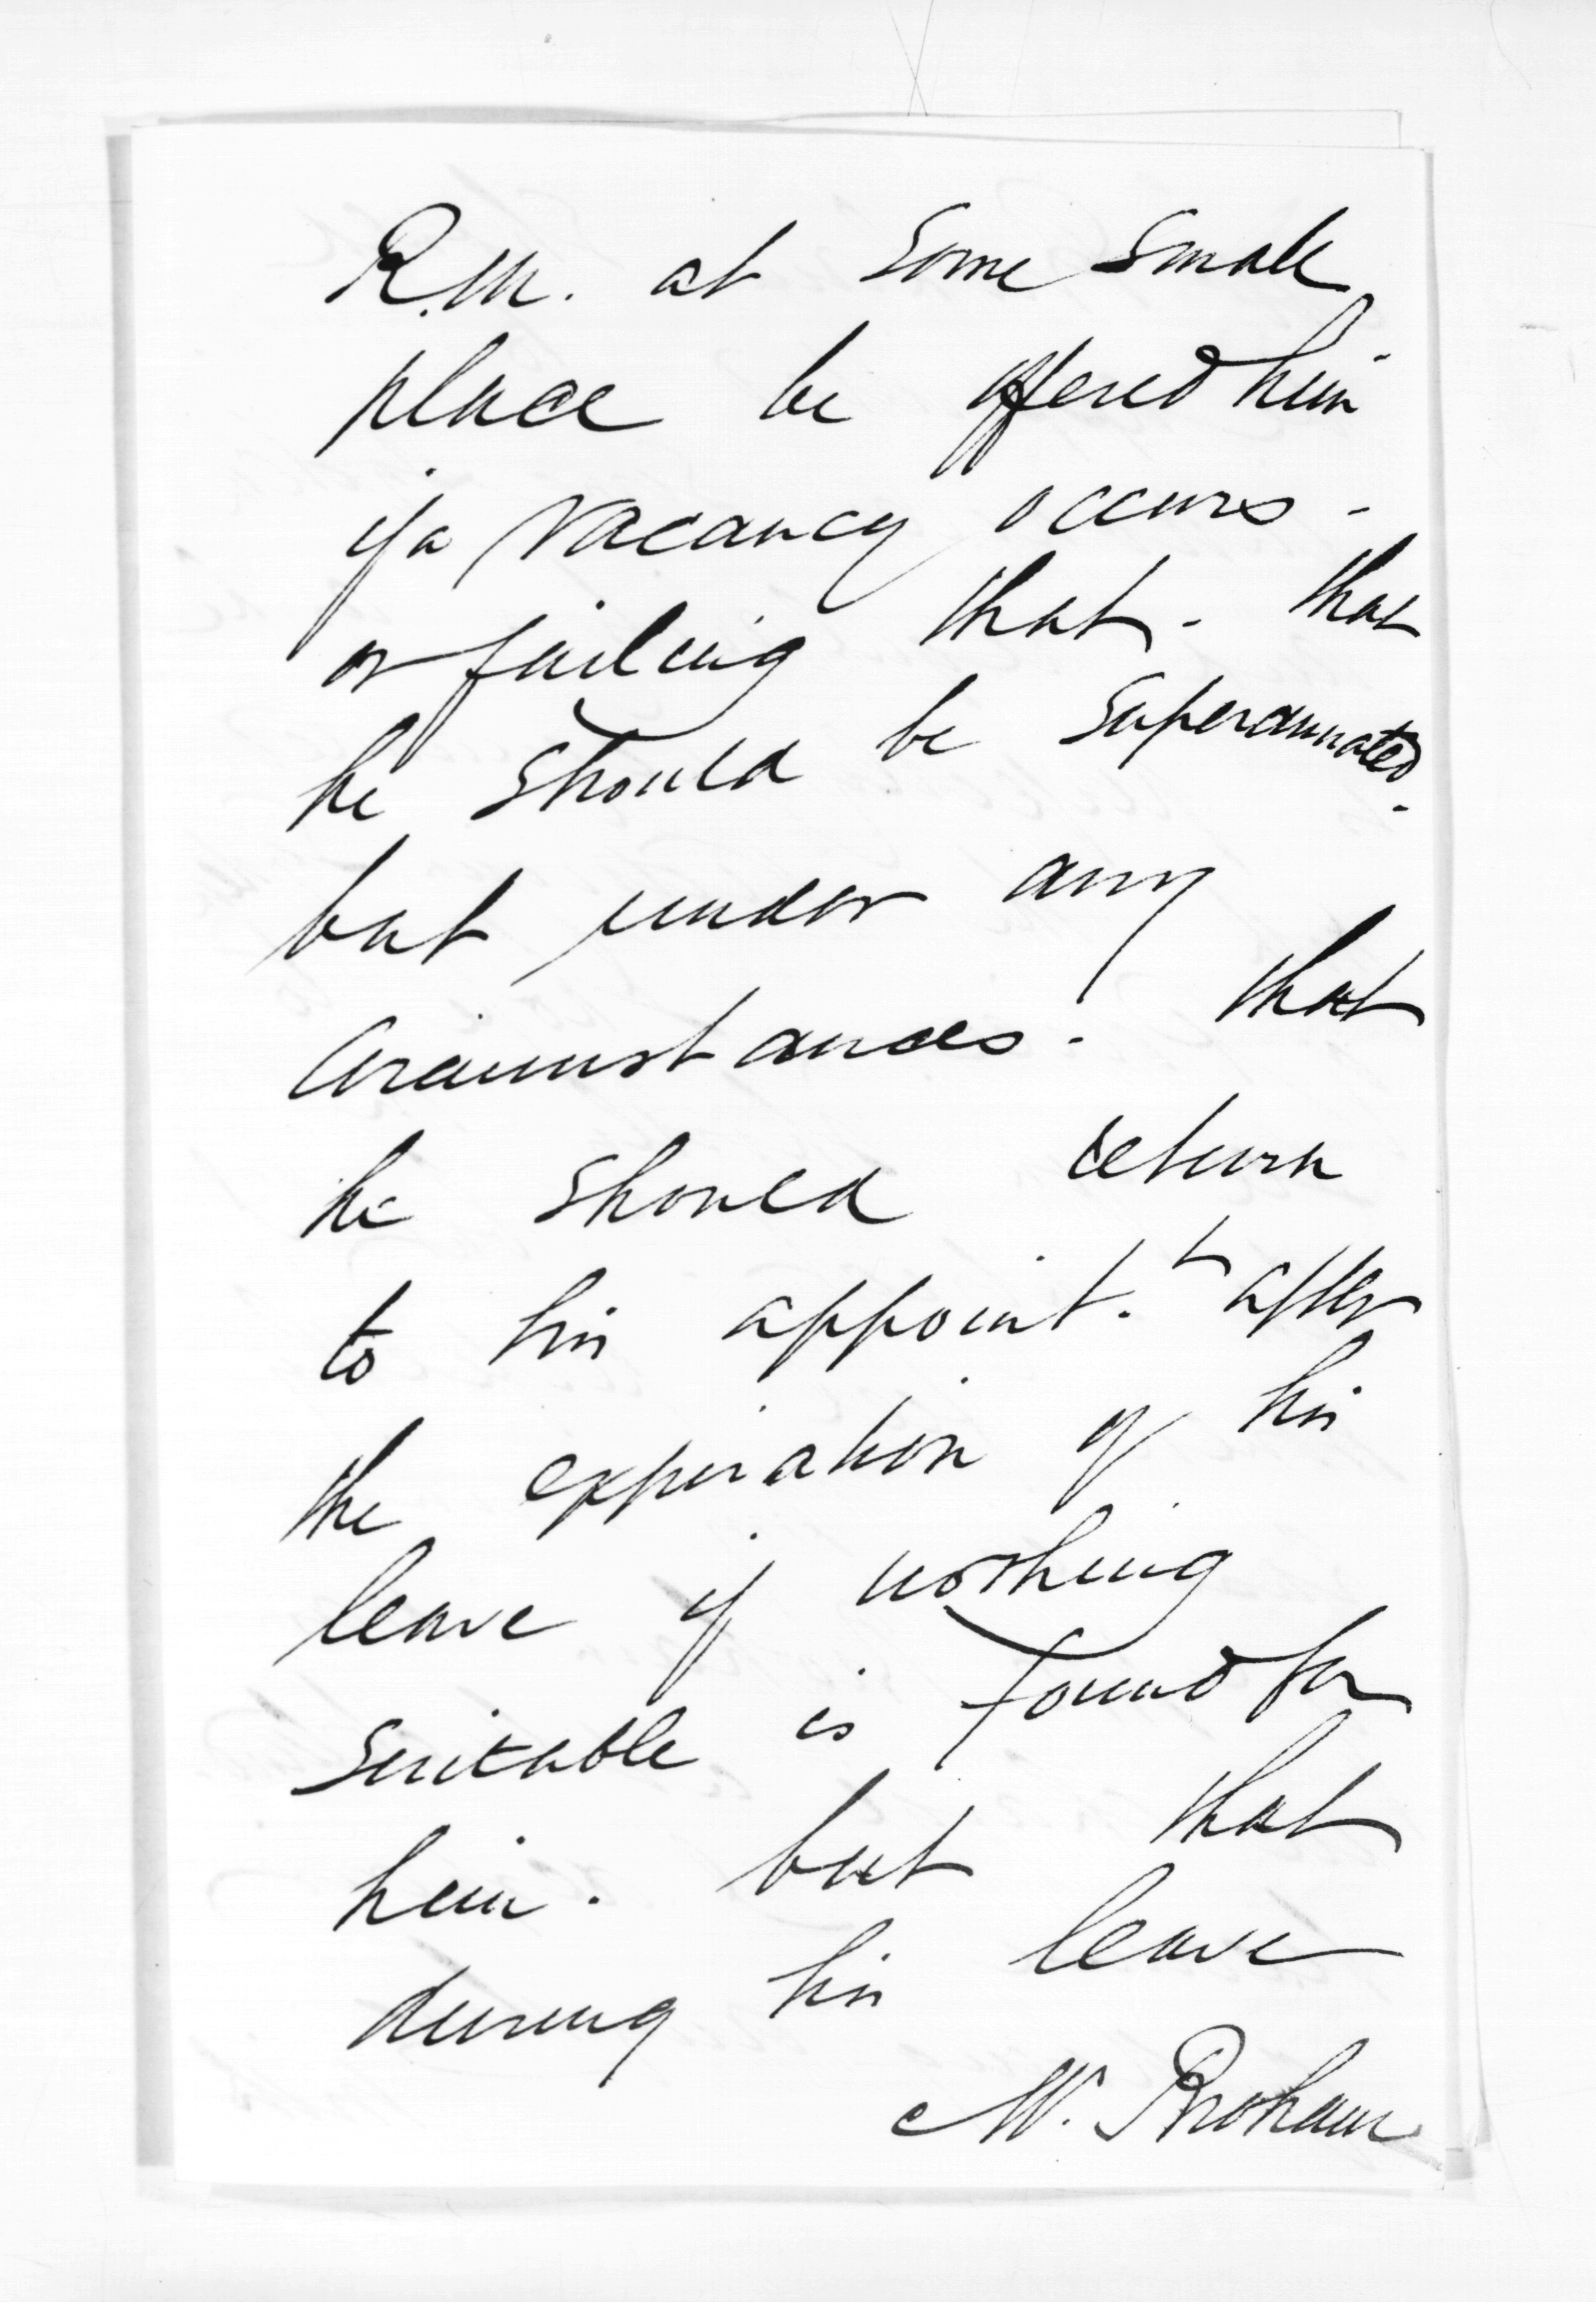 R.M. at some small
place be offered him
if a vacancy occurs -
or failing that - that
he should be superannuated -
but under any
circumstances - that
he should return
to his appoint.t after
the expiration of his
leave if nothing
suitable is found for
him. but that
during his leave
Mr. Braham